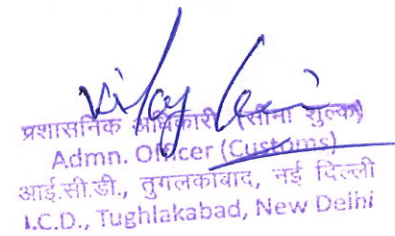 प्रशासनिक अधिकारी (सीमा शुल्क)
Admn. Officer (Customs)
आई.सी.डी., तुगलकाबाद, नई दिल्ली
I.C.D., Tughlakabad, New Delhi